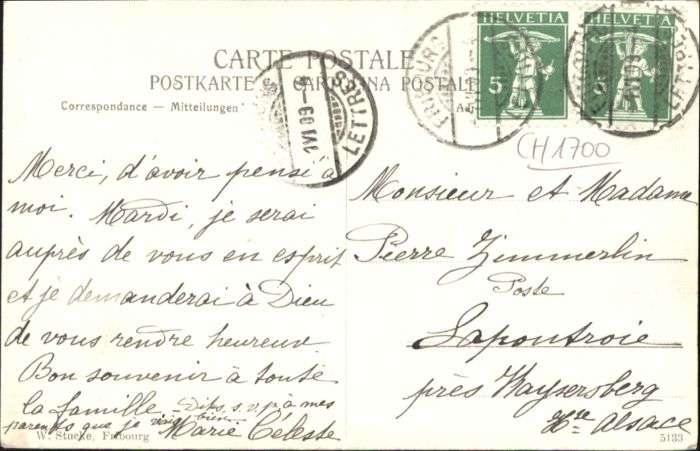 CARTE POSTALE
POSTKARTE CARTOLINA POSTALE
Correspondance — Mitteilungen
HELVETIA
5
HELVETIA
5
FRIBOURG
LETTRES
CH 1700
Merci, d'avoir pensé à
moi. Mardi, je serai
auprès de vous en esprit
et je demanderai à Dieu
de vous rendre heureux
Bon souvenir à toute
la famille — Dites, s. v. p. à mes
parents que je vais bien
Marie Céleste
Monsieur et Madame
Pierre Zimmerlin
Poste
Lapoutroie
près Kaysersberg
Hte Alsace
W. Stucke, Fribourg
5133